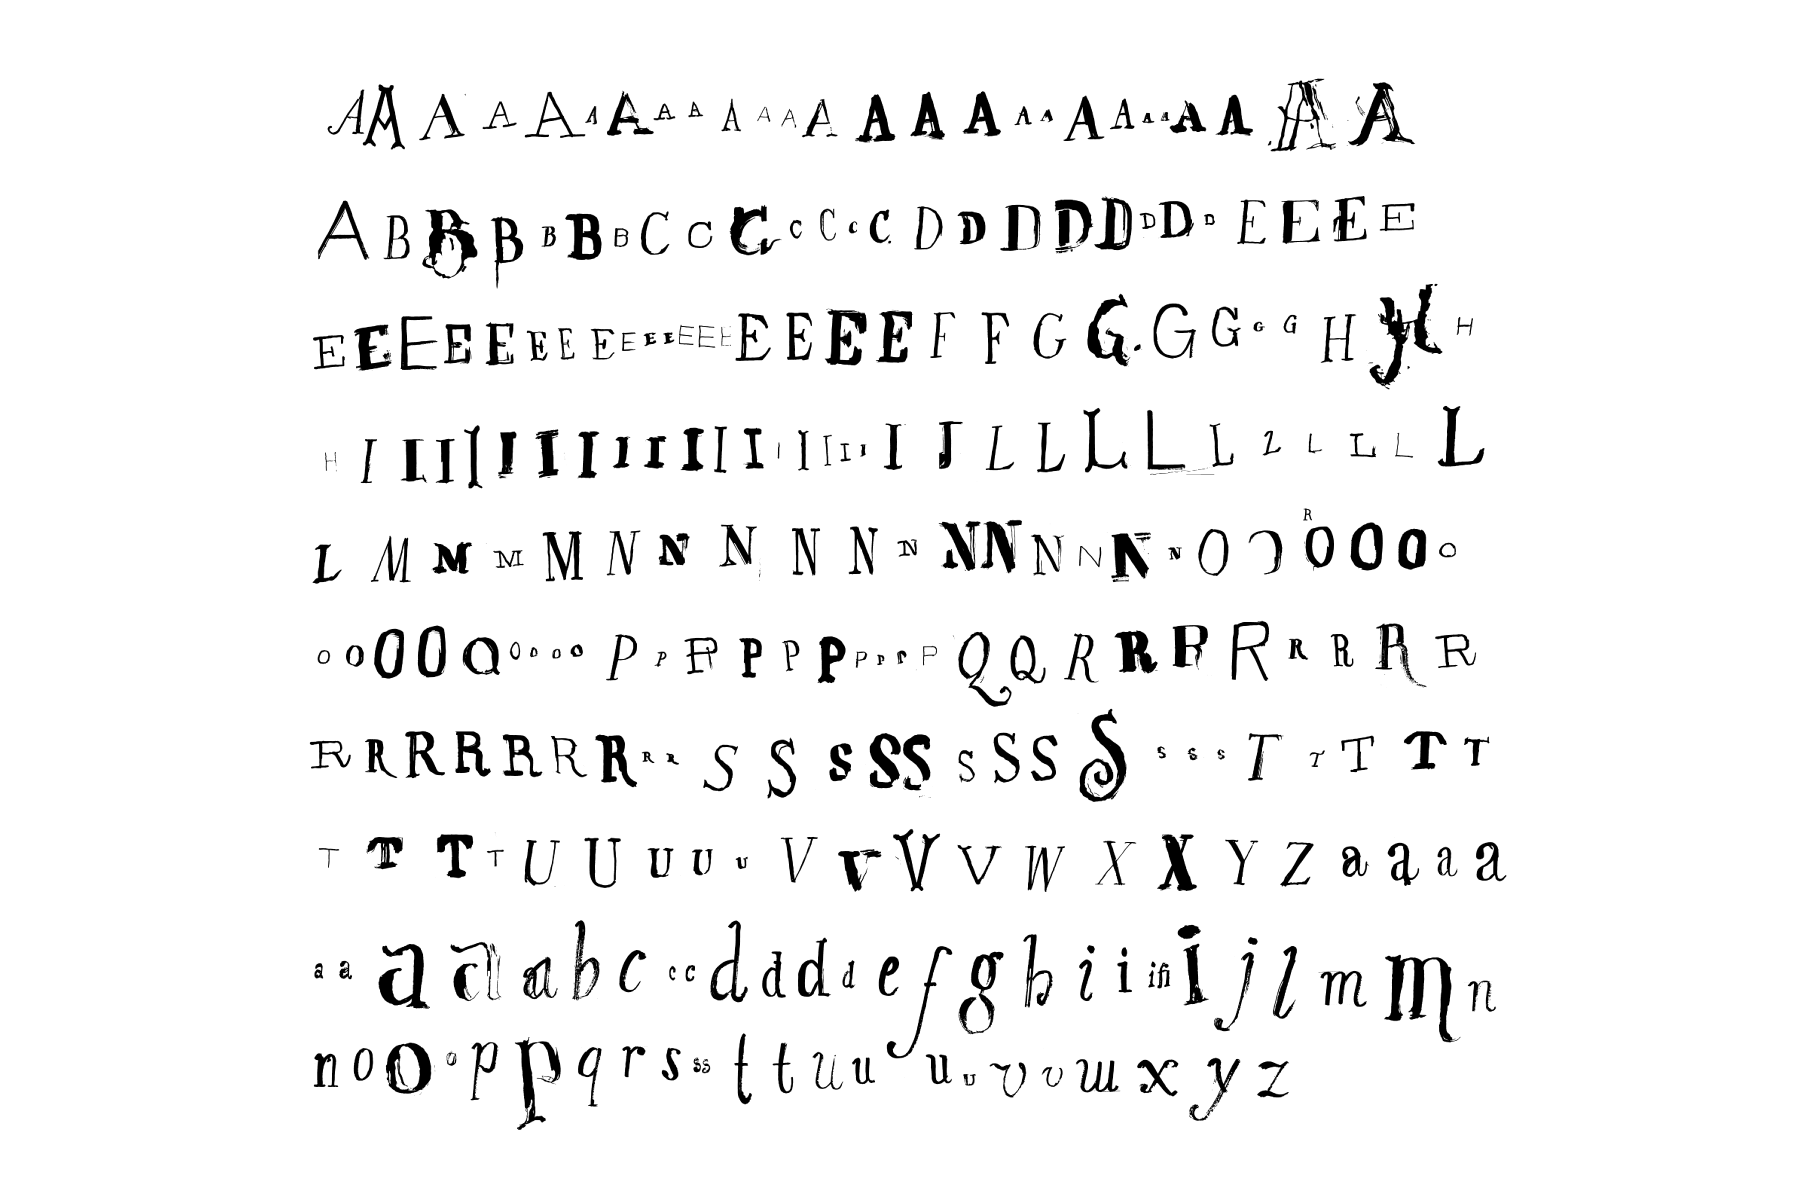 A A A A A A A A A A A A A A A A A A A A A A A A A A A
A B B B B B B C C C C C C C D D D D D D D D E E E E
E E E E E E E E E E E E E E E E E E F F G G G G G G H H H
H I I I I I I I I I I I I I I I I I I J L L L L L L L L L L
L M M M M N N N N N N N N N N N N O O R O O O O
O O O O O O O O O P P P P P P P P P P Q Q R R R R R R R R
R R R R R R R R R S S S S S S S S S S S S T T T T T
T T T T U U U U U V V V V W X X Y Z a a a a
a a a a a b c c c d d d d e f g h i i ifi i j l m m n
n o o o p p q r s ss t t u u u u v v w x y z